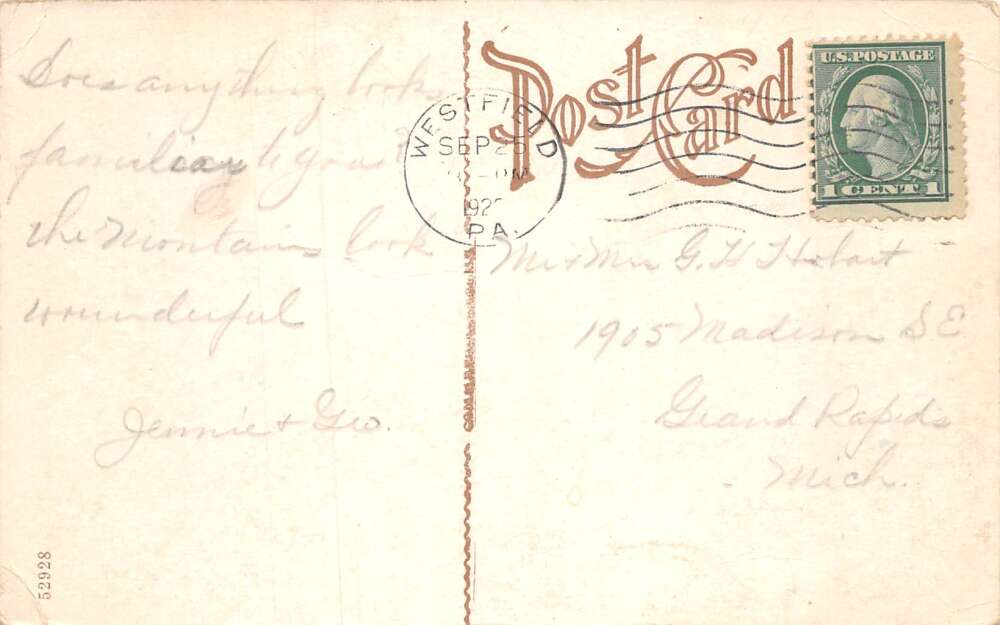 Does anything look
familiar to you?
the Montains look
wounderful
Jennie & Geo.
52928
Post Card
WESTFIELD
SEP 25
PM
192
PA.
U.S. POSTAGE
1 CENT 1
Mr & Mrs G. H Hobart
1905 Madison S E
Grand Rapids
Mich.